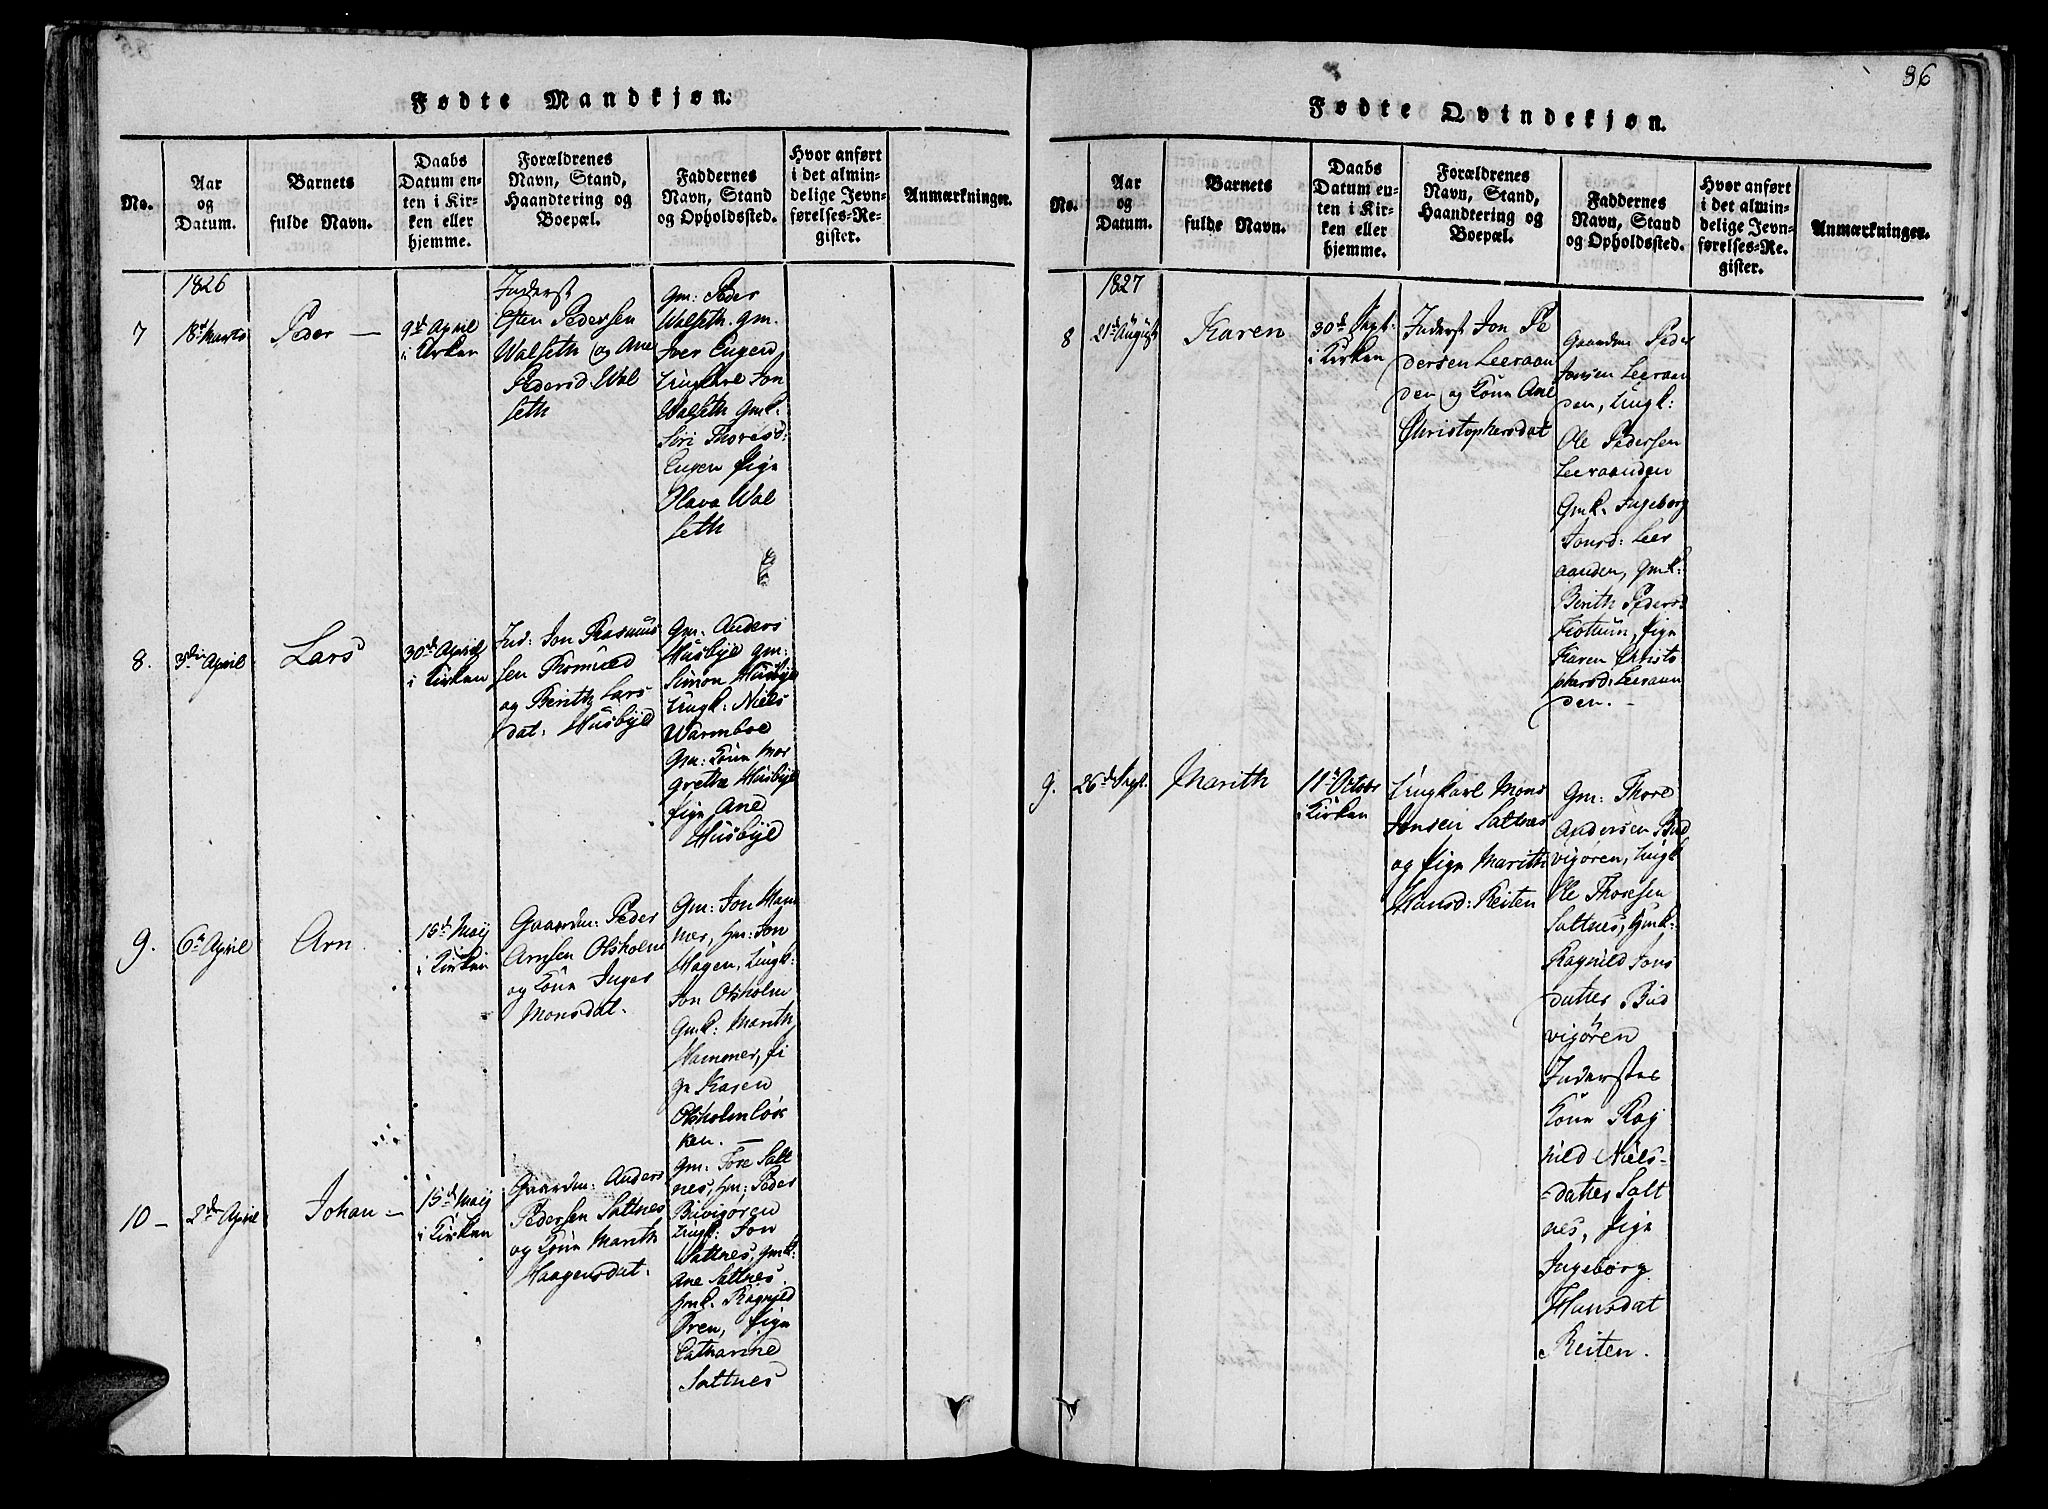 86
Fødte Mandkjøn.
No.
Aar
og
Datum.
Barnets
fulde Navn.
Daabs
Datum en-
ten i Kir-
ken eller
hjemme.
Forældrenes
Navn, Stand,
Haandtering og
Boepæl.
Faddernes
Navn, Stand
og Opholdssted.
Hvor anført
i det almin-
delige Jevn-
førelses-Re-
gister.
Anmærkninger.
1826
7
18d Marts
Peder —
9d April
i Kirken
Inderst
Esten Pedersen
Walseth og Ane
Pedersd. Wal
seth
Gm: Peder
Walseth. Gm.
Iver Eugen
Ungkarl Jon
Walseth Gmk.
Siri Thoresd:
Eugen Pige
Olava Wal
seth
8.
3die April
Lars
30d April
i Kirken
Ind: Jon Rasmus
sen Thomued
og Berith Lars
dat. Husbye
Gm. Anders
Husbye gm:
Simon Husbye
Ungk: Niels
Warmboe
Gm: Kone Mar
grethe Husbye
Pige Ane
Husbye
9.
6te April
Arn
15d Maij
i Kirken
Gaardm: Peder
Arnsen Olsholm
og Kone Inger
Monsdat.
Gm: Jon Ham
mer, Hm: Jon
Hagen, Ungk:
Jon Olsholm
Gmk: Marith
Hammer, Pi
ge Karen
Olsholmløk
ken. —
10 —
2den April
Johan —
15d Maij
i Kirken
Gaardm: Anders
Pedersen Saltnes
og Kone Marith
Haagensdat.
Gm: Tore Salt
nes, Hm: Peder
Buvigøren
Ungk: Jon
Saltnes, Gmk:
Ane Saltnes.
Hmk. Ragnild
Øren, Pige
Catharine
Saltnes
Fødte Qvindekjøn.
No.
Aar
og
Datum.
Barnets
fulde Navn.
Daabs
Datum en-
ten i Kir-
ken eller
hjemme.
Forældrenes
Navn, Stand,
Haandtering og
Boepæl.
Faddernes
Navn, Stand
og Opholdssted.
Hvor anført
i det almin-
delige Jevn-
førelses-Re-
gister.
Anmærkninger.
1827
8
21d August
Karen
30d Sept.
i Kirken
Inderst Jon Pe
dersen Leeraan
den og Kone Ane
Christophersdat
Gaardm Peder
Jonsen Leeraan
den, Ungk:
Ole Pedersen
Leeraanden
Gmk. Ingeborg
Jonsd: Leer
aanden, Gmk:
Berith Pedersd
Flottum, Pige
Karen Christo-
phersd: Leeraan
den. —
9.
26d Sept.
Marith
11te Octobr
i Kirken
Ungkarl Mons
Jonsen Saltnes
og Pige Marith
Hansd: Reiten
Gm: Thore
Andersen Bud
vigøren, Ungk
Ole Thoresen
Saltnes, Gmk:
Ragnild Jons
datter Bud
vigøren
Inderstes
Kone Rag
nild Niels-
datter Salt
nes, Pige
Ingeborg
Hansdat
Reiten.